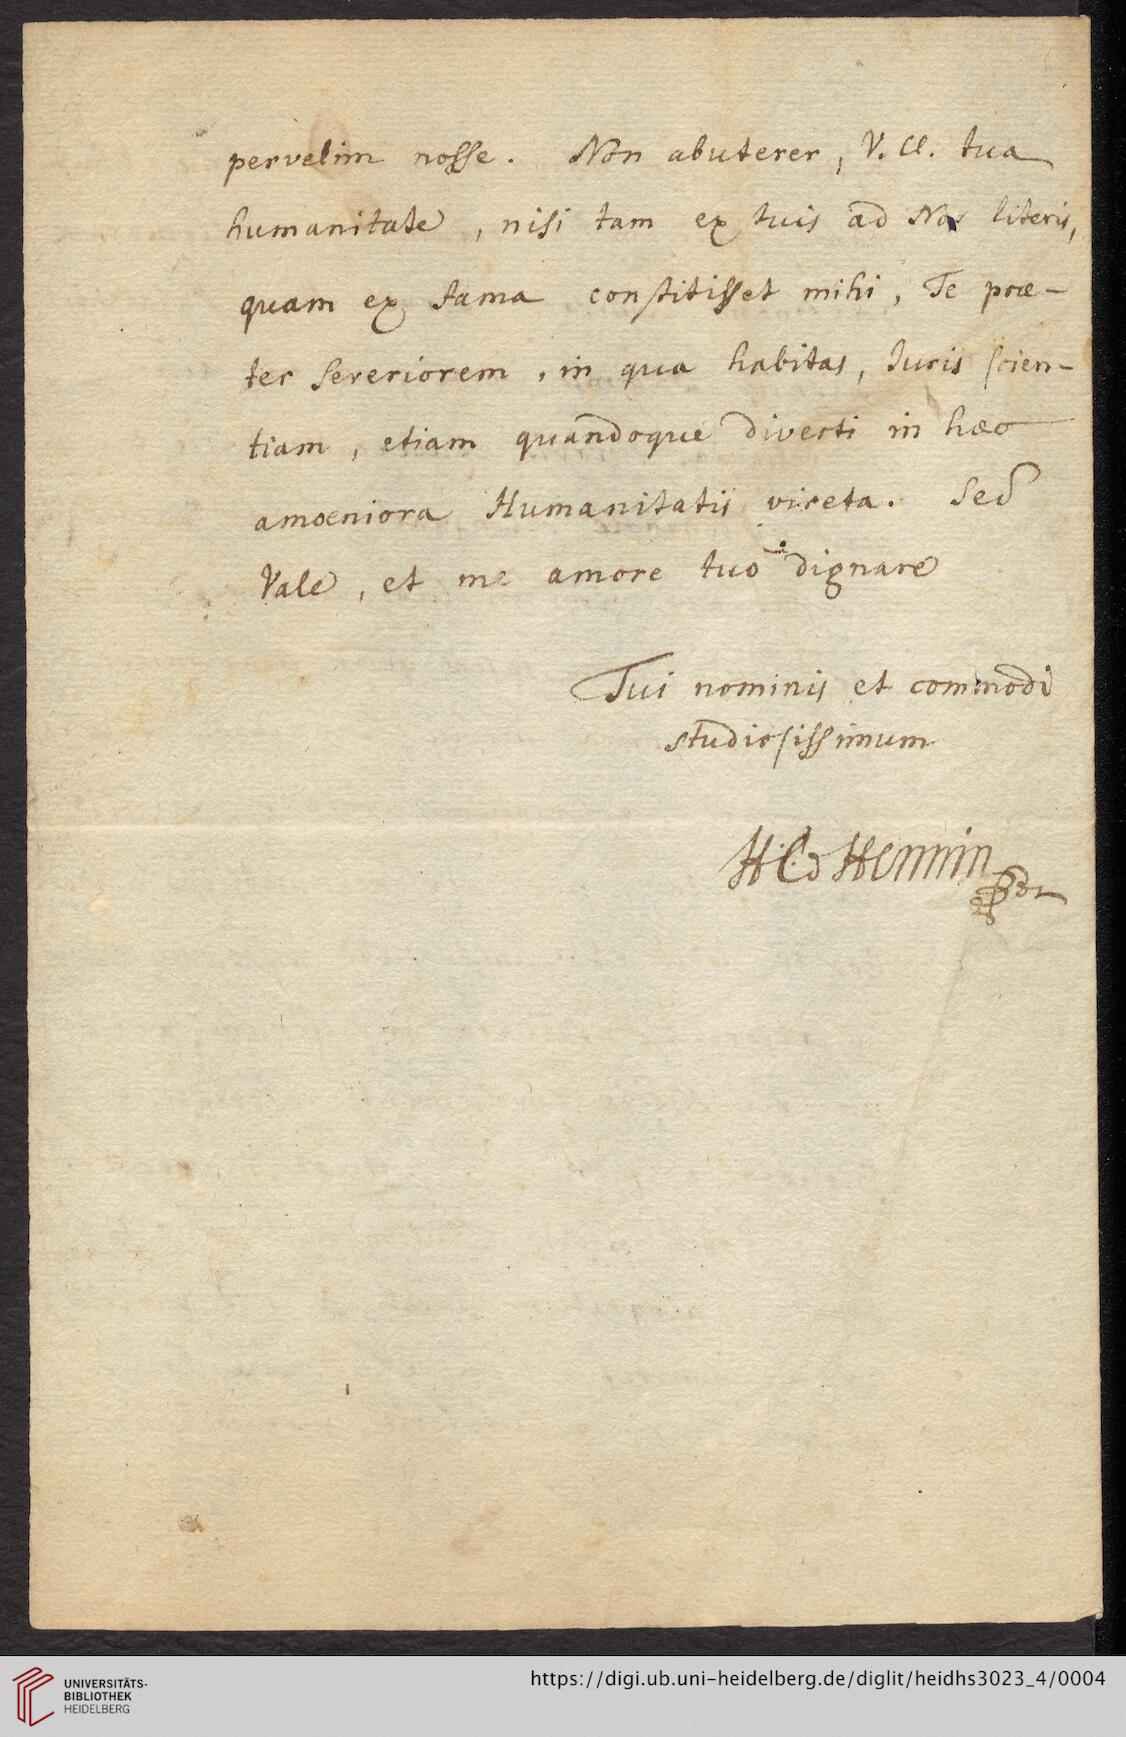 pervelim nosse. Non abuterer, V. Cl. tua
humanitate, nisi tam ex tuis ad Nos literis,
quam ex fama constitisset mihi, Te præ-
ter severiorem, in qua habitas, Iuris scien-
tiam, etiam quandoque diverti in hæc
amoeniora Humanitatis vireta. Sed
Vale, et me amore tuo dignare
Tui nominis et commodi
studiosissimum
H. C. Hennin
UNIVERSITÄTS-
BIBLIOTHEK
HEIDELBERG
https://digi.ub.uni-heidelberg.de/diglit/heidhs3023_4/0004